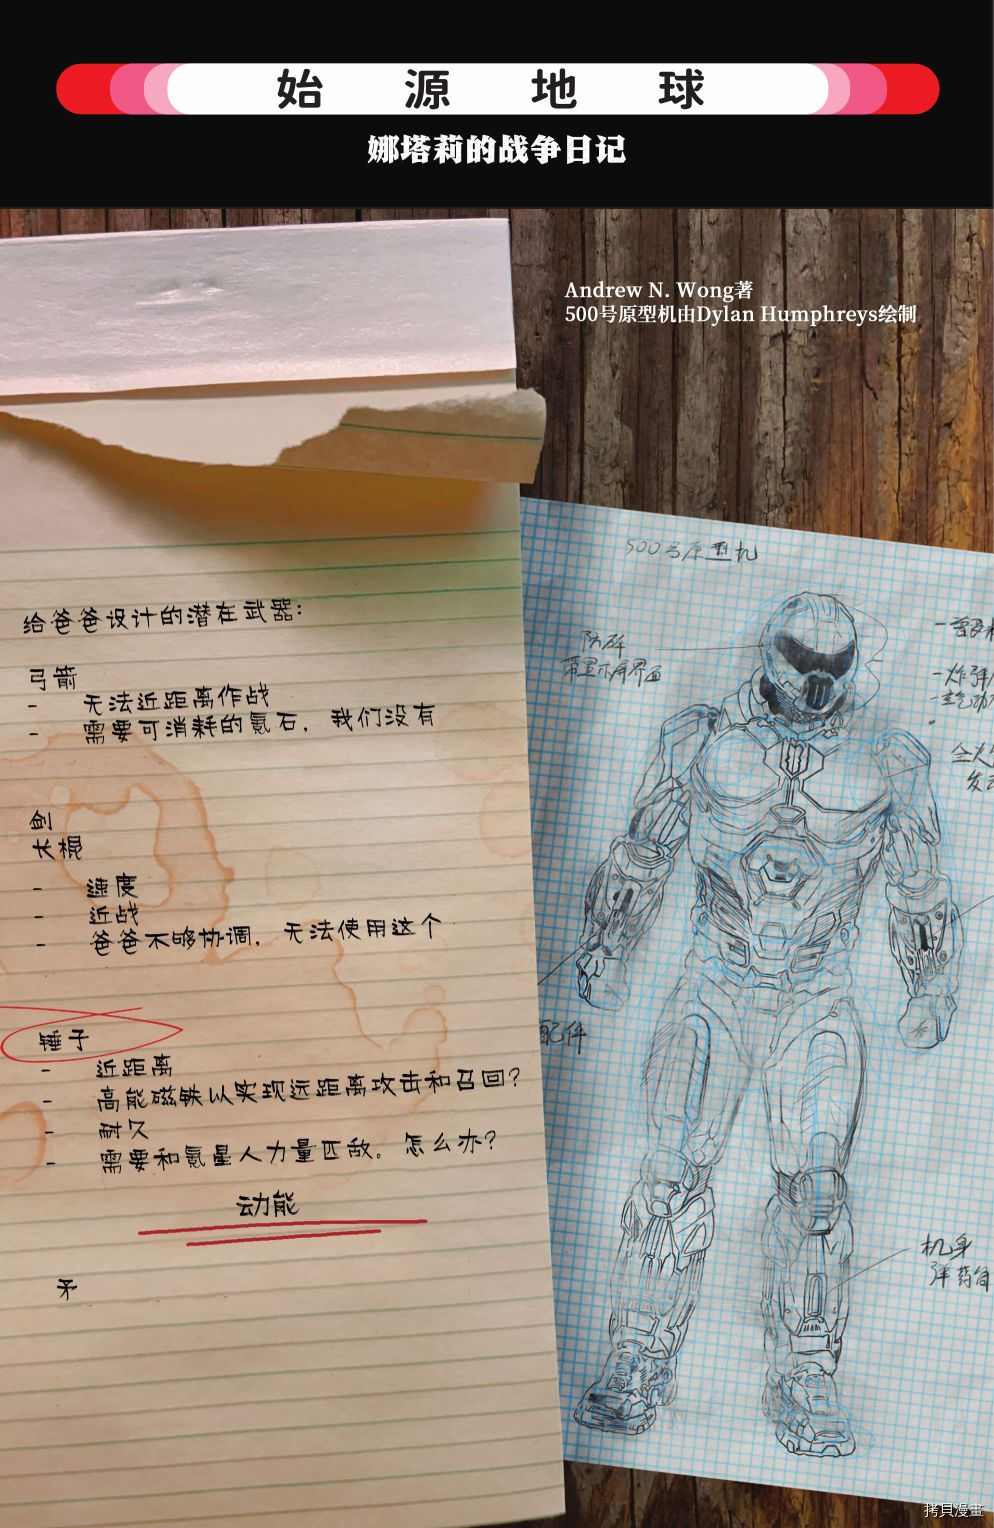 始源地球
娜塔莉的战争日记
Andrew N. Wong著
500号原型机由Dylan Humphreys绘制
给爸爸设计的潜在武器:
弓箭
- 无法近距离作战
- 需要可消耗的氪石，我们没有
剑
长棍
- 速度
- 近战
- 爸爸不够协调，无法使用这个
锤子
- 近距离
- 高能磁铁以实现远距离攻击和召回？
- 耐久
- 需要和氪星人力量匹敌。怎么办？
动能
矛
500号原型机
防碎
带显示屏界面
配件
机身
弹药
拷貝漫畫